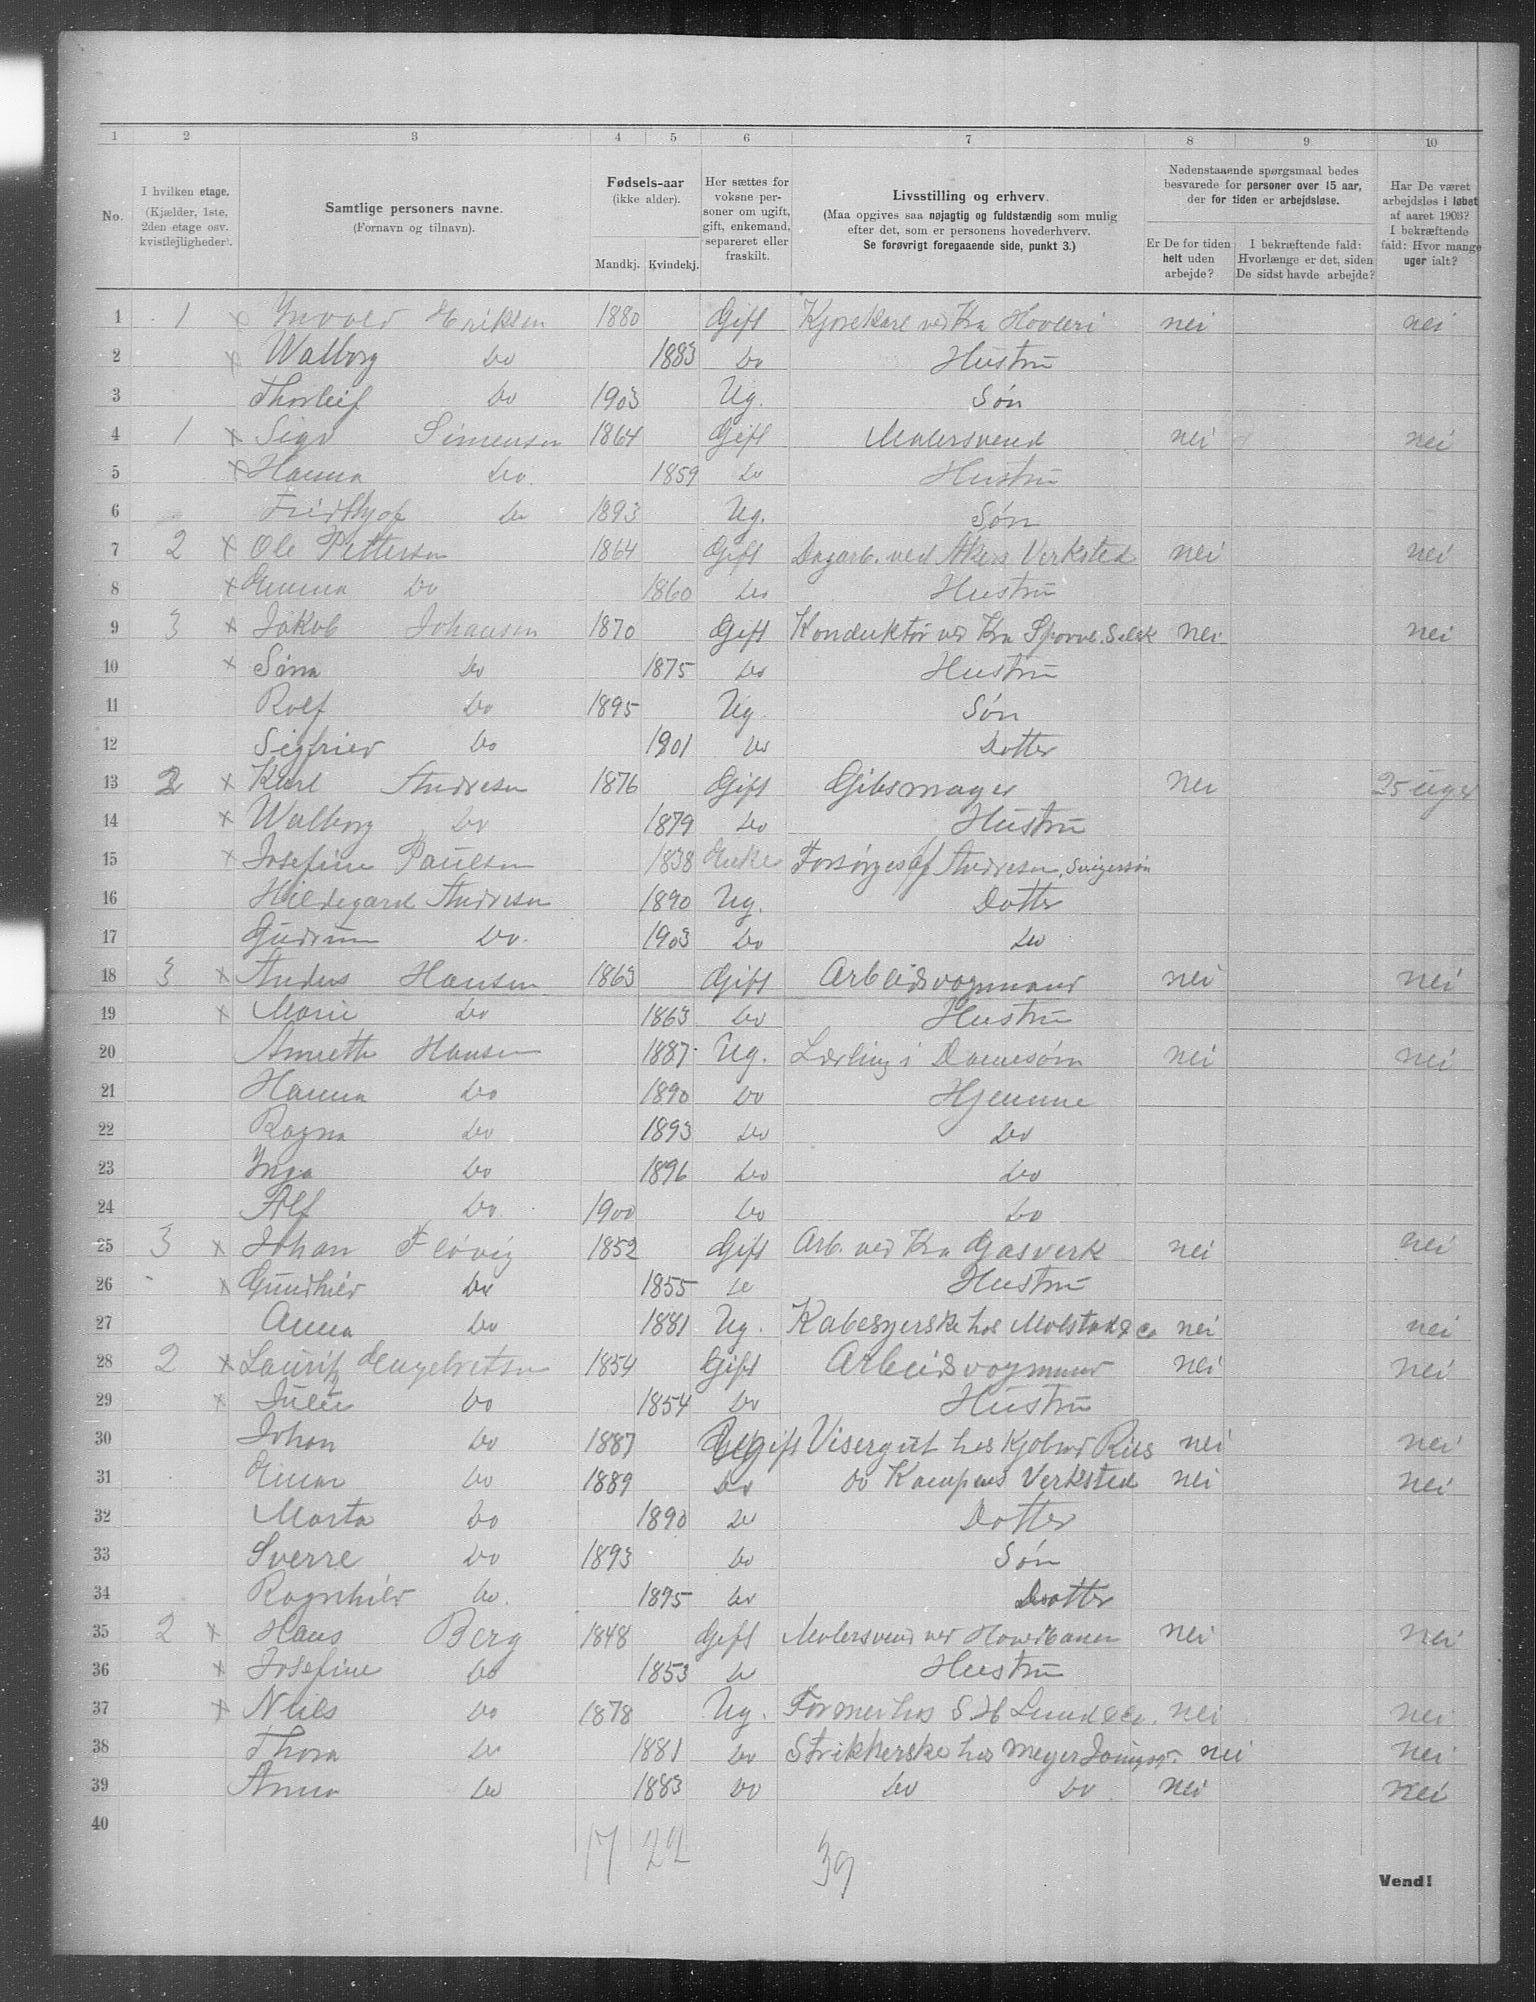 1 2 3 4 5 6 7 8 9 10
No.
I hvilken etage. (Kjælder, 1ste, 2den etage osv. kvistlejligheder).
Samtlige personers navne. (Fornavn og tilnavn).
Fødsels-aar (ikke alder). Mandkj. Kvindekj.
Her sættes for voksne personer om ugift, gift, enkemand, separeret eller fraskilt.
Livsstilling og erhverv. (Maa opgives saa nøjagtig og fuldstændig som mulig efter det, som er personens hovederhverv. Se forøvrigt foregaaende side, punkt 3.)
Nedenstaaende spørgsmaal bedes besvarede for personer over 15 aar, der for tiden er arbejdsløse.
Er De for tiden helt uden arbejde?
I bekræftende fald: Hvorlænge er det, siden De sidst havde arbejde?
Har De været arbejdsløs i løbet af aaret 1903? I bekræftende fald: Hvor mange uger ialt?
1 1 x Eriksen 1880 Gift Kjørekarl ved Kra Hovleri nei nei
2 x Walborg Do 1883 Do Hustru
3 Thorleif Do 1903 Ug. Søn
4 1 x Sigv Simensen 1864 Gift Malersvend nei nei
5 x Hanna Do 1859 Do Hustru
6 Fridthjof Do 1893 Ug. Søn
7 2 x Ole Pettersen 1864 Gift Dagarb. ved Akers Verksted nei nei
8 x Emma Do 1860 Do Hustru
9 3 x Jakob Johansen 1870 Gift Konduktør ved Kra Sporv. Selsk nei nei
10 x Sina Do 1875 Do Hustru
11 Rolf Do 1895 Ug. Søn
12 Sigfried Do 1901 Do Dotter
13 2 x Karl Andresen 1876 Gift Gibsmager nei 25 uger
14 x Walborg Do 1879 Do Hustru
15 x Josefine Paulsen 1838 Enke Forsørges af Andresen, Svigersøn
16 Hildegard Andresen 1890 Ug. Dotter
17 Gudrun Do. 1903 Do Do
18 3 x Anders Hansen 1863 Gift Arbeidsvogmand nei nei
19 x Marie Do 1863 Do Hustru
20 Annette Hansen 1887 Ug. Lærling i Damesøm nei nei
21 Hanna Do 1890 Do Hjemme
22 Ragna Do 1893 Do Do
23 Inga Do 1896 Do Do
24 Alf Do 1900 Do Do
25 3 x Johan Fløvig 1852 Gift Arb. ved Kra Gasverk nei nei
26 x Gundhild Do 1855 Do Hustru
27 Anna Do 1881 Ug. Kabesyerske hos Molstad & Co nei nei
28 2 x Lauritz Engebretsen 1854 Gift Arbeidsvogmand nei nei
29 x Julie Do 1854 Do Hustru
30 Johan Do 1887 Ugift Visergut hos Kjøbmd Riis nei nei
31 Einar Do 1889 Do Do Kampens Verksted nei nei
32 Marta Do 1890 Do Dotter
33 Sverre Do 1893 Do Søn
34 Ragnhild Do. 1895 Do Dotter
35 2 x Hans Berg 1848 Gift Malersvend ved Hovedbanen nei nei
36 x Josefine Do 1853 Do Hustru
37 x Niels Do 1878 Ug. Former hos S H Lund & Co. nei nei
38 Thora Do 1881 Do Strikkerske hos Meyer nei nei
39 Anna Do 1883 Do Do Do nei nei
40
17 22 39
Vend!